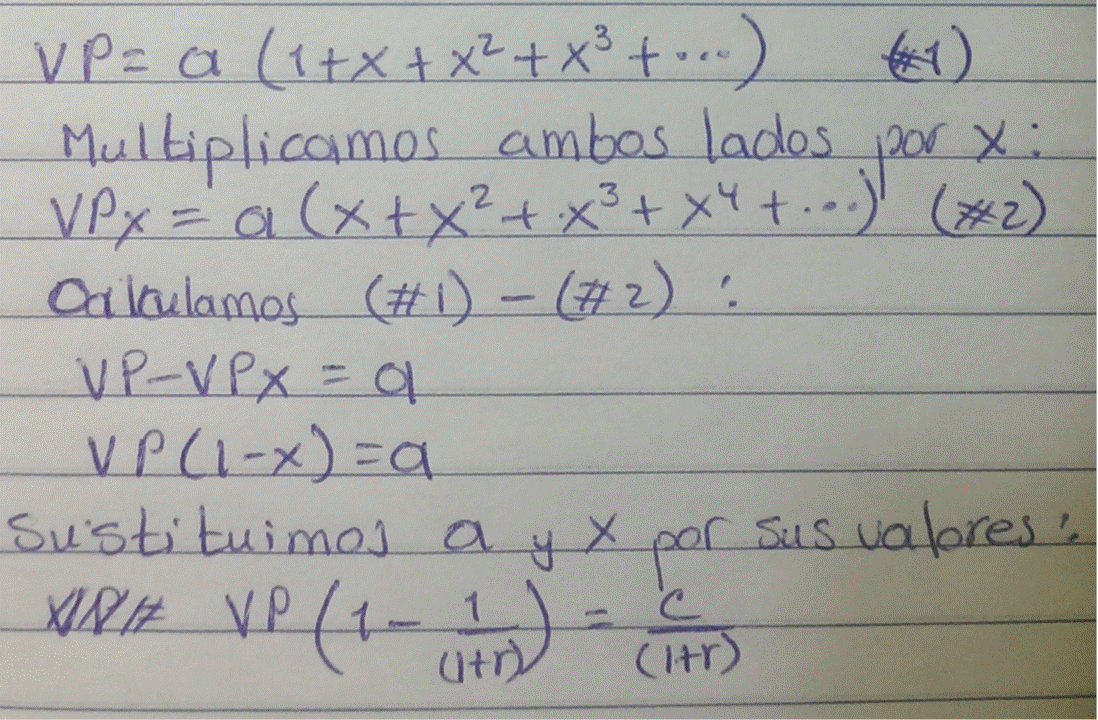 VP = a (1+x+x²+x³+...) (#1)
Multiplicamos ambos lados por x:
VPx = a (x+x²+x³+x⁴+...) (#2)
Calculamos (#1) - (#2) :
VP-VPx = a
VP(1-x)=a
Sustituimos a y x por sus valores:
VP(1 - 1/(1+r)) = C/(1+r)